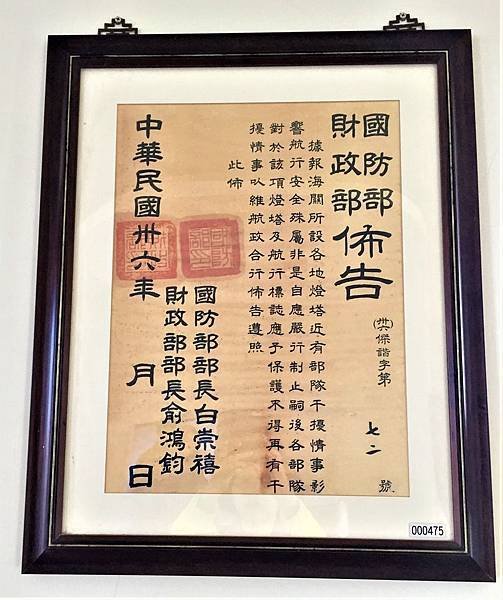 國防部
財政部
佈告
(卅六)傑諧字第 七二 號
據報海關所設各地燈塔近有部隊干擾情事影
響航行安全殊屬非是自應嚴行制止嗣後各部隊
對於該項燈塔及航行標誌應予保護不得再有干
擾情事以維航政合行佈告遵照
此佈
國防部部長白崇禧
財政部部長俞鴻鈞
中華民國卅六年 月 日
000475